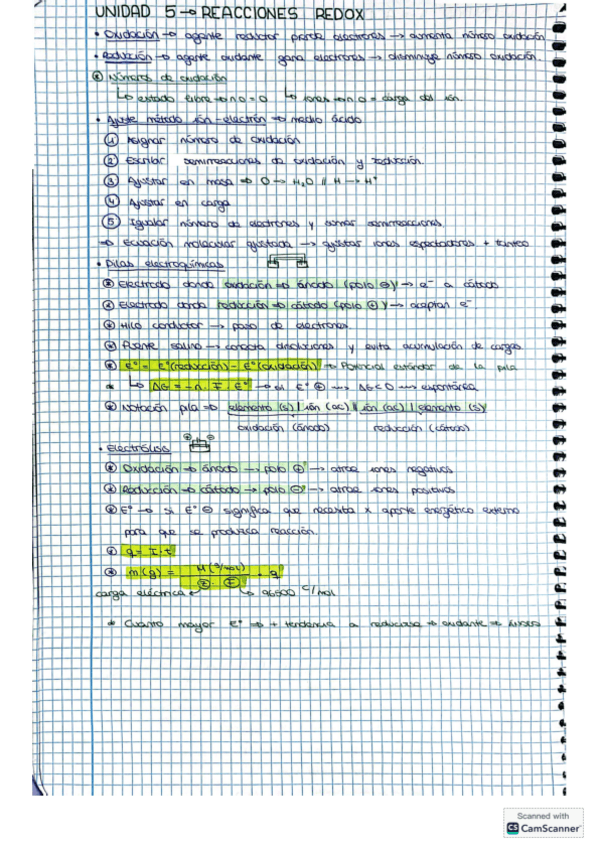 UNIDAD 5 → REACCIONES REDOX
• Oxidación → agente reductor pierde electrones → aumenta número oxidación
• Reducción → agente oxidante gana electrones → disminuye número oxidación.
Números de oxidación
↳ estado libre → n.o = 0 ↳ iones → n.o = carga del ión.
• Ajuste método ión-electrón → medio ácido
① Asignar número de oxidación
② Escribir semirreacciones de oxidación y reducción.
③ Ajustar en masa ⇒ O → H₂O // H → H⁺
④ Ajustar en carga
⑤ Igualar número de electrones y sumar semirreacciones.
⇒ Ecuación molecular ajustada → ajustar iones espectadores + tanteo
• Pilas electroquímicas
Electrodo donde oxidación ⇒ ánodo (polo ⊖) → e⁻ a cátodo
Electrodo donde reducción ⇒ cátodo (polo ⊕) → aceptan e⁻
Hilo conductor → paso de electrones.
Puente salino → conecta disoluciones y evita acumulación de cargas
E° = E°(reducción) - E°(oxidación) → Potencial estándar de la pila
↳ ΔG = -n. F. E° → si E° ⊕ → ΔG < 0 → espontánea
Notación pila ⇒ elemento (s) | ión (ac) || ión (ac) | elemento (s)
oxidación (ánodo) reducción (cátodo)
• Electrólisis
Oxidación → ánodo → polo ⊕ → atrae iones negativos
Reducción → cátodo → polo ⊖ → atrae iones positivos
E° → si E° ⊖ significa que necesita x aporte energético externo
para que se produzca reacción.
q = I . t
m (g) = M (g/mol) / z . F . q
carga eléctrica ↳ 96500 C/mol
* Cuanto mayor E° ⇒ + tendencia a reducirse ⇒ oxidante ⇒
Scanned with
CS CamScanner